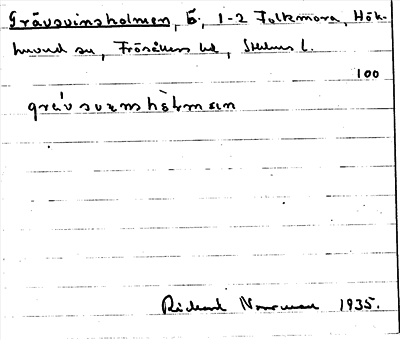 Grävsvinsholmen, Ö., 1-2 Folkmora, Hök-
huvud sn, Frösåkers hd, Sthlms l.
100
grävsvinshòlmen
Rickard Norrman 1935.